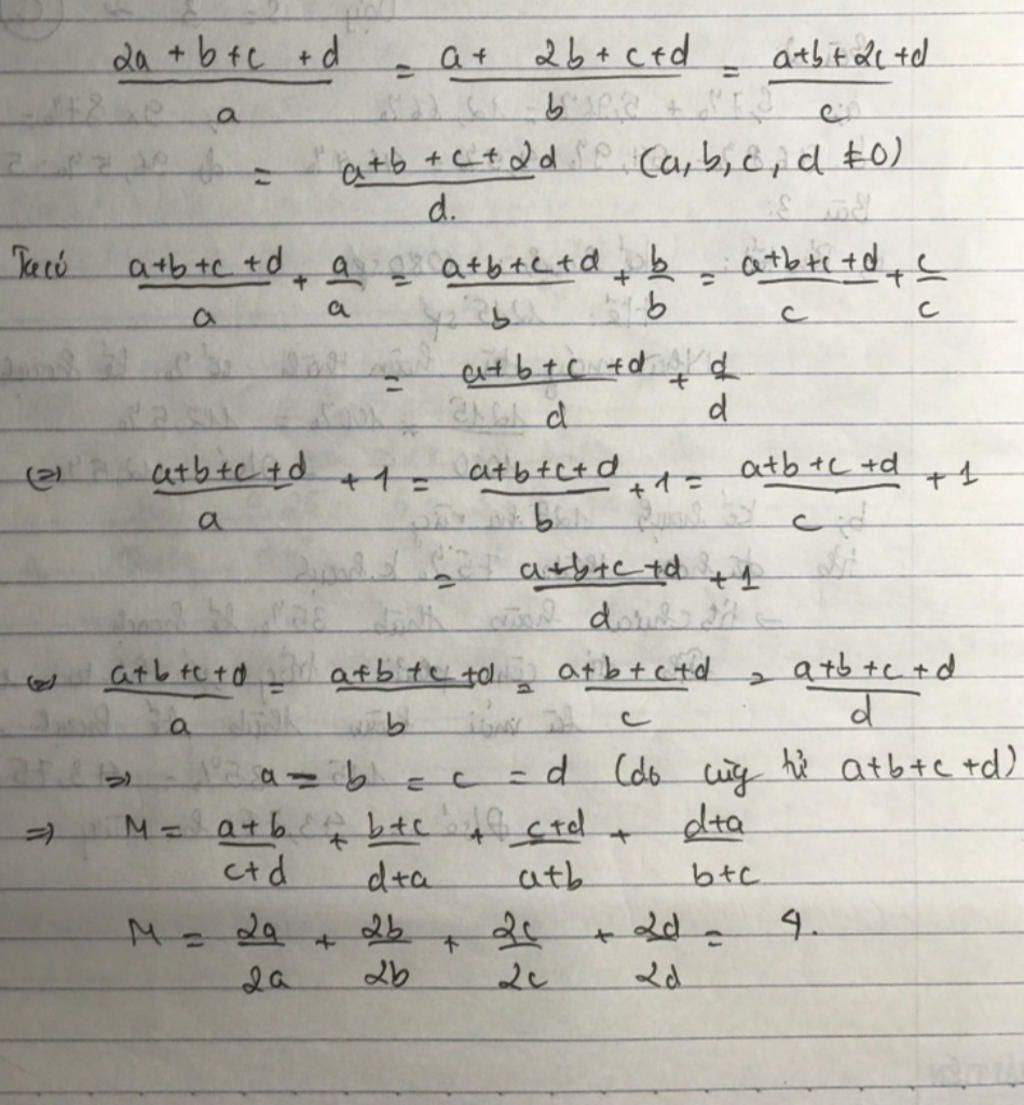 2a + b + c + d / a = a + 2b + c + d / b = a + b + 2c + d / c
= a + b + c + 2d / d. (a, b, c, d ≠ 0)
Ta có a+b+c+d / a + a / a = a+b+c+d / b + b / b = a+b+c+d / c + c / c
= a+b+c+d / d + d / d
(=) a+b+c+d / a + 1 = a+b+c+d / b + 1 = a+b+c+d / c + 1
= a+b+c+d / d + 1
(=) a+b+c+d / a = a+b+c+d / b = a+b+c+d / c = a+b+c+d / d
=> a = b = c = d (do cùg tử a+b+c+d)
=> M = a+b / c+d + b+c / d+a + c+d / a+b + d+a / b+c
M = 2a / 2a + 2b / 2b + 2c / 2c + 2d / 2d = 4.